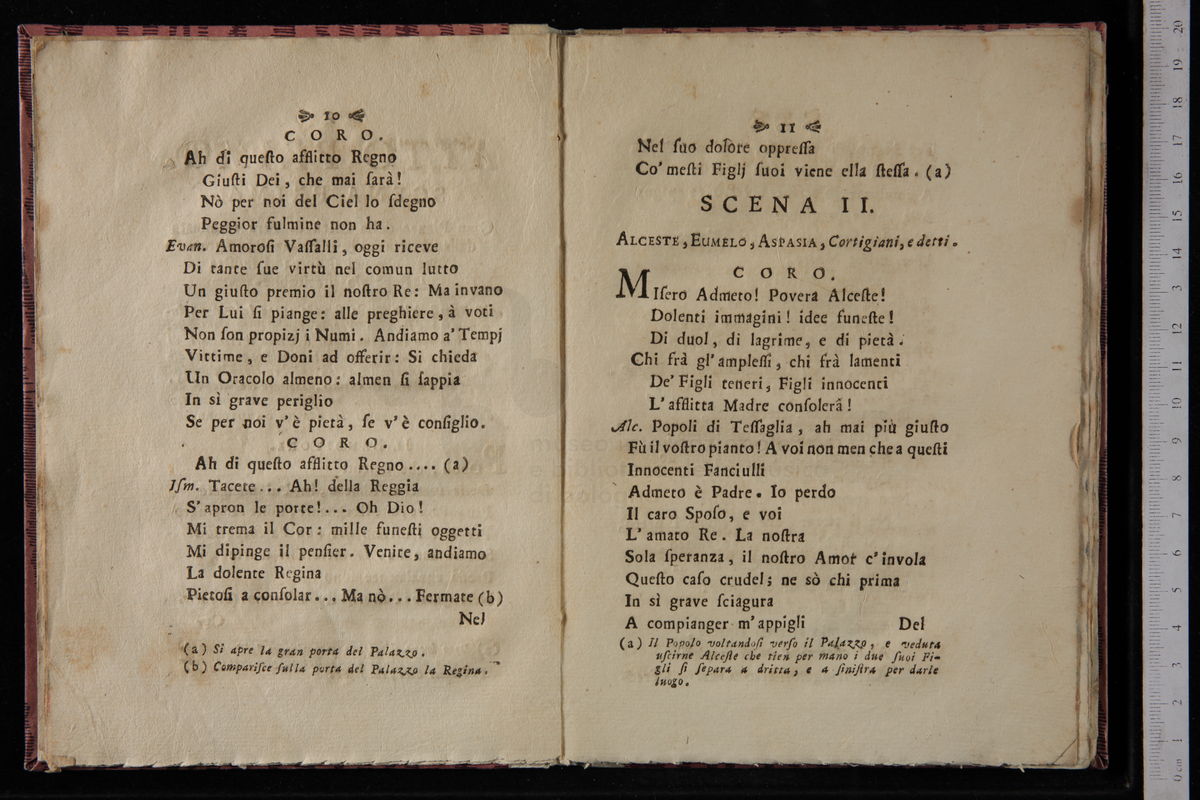 10
CORO.
Ah di queſto afflitto Regno
Giuſti Dei, che mai ſarà!
Nò per noi del Ciel lo ſdegno
Peggior fulmine non ha.
Evan. Amoroſi Vaſſalli, oggi riceve
Di tante ſue virtù nel comun lutto
Un giuſto premio il noſtro Re: Ma invano
Per Lui ſi piange: alle preghiere, à voti
Non ſon propizj i Numi. Andiamo a' Tempj
Vittime, e Doni ad offerir: Si chieda
Un Oracolo almeno: almen ſi ſappia
In sì grave periglio
Se per noi v'è pietà, ſe v'è conſiglio.
CORO.
Ah di queſto afflitto Regno.... (a)
Iſm. Tacete... Ah! della Reggia
S'apron le porte!... Oh Dio!
Mi trema il Cor: mille funeſti oggetti
Mi dipinge il penſier. Venite, andiamo
La dolente Regina
Pietoſi a conſolar... Ma nò... Fermate (b)
Nel
(a) Si apre la gran porta del Palazzo.
(b) Compariſce ſulla porta del Palazzo la Regina.
11
Nel ſuo dolore oppreſſa
Co' meſti Figlj ſuoi viene ella ſteſſa. (a)
SCENA II.
ALCESTE, EUMELO, ASPASIA, Cortigiani, e detti.
CORO.
MIſero Admeto! Povera Alceſte!
Dolenti immagini! idee funeſte!
Di duol, di lagrime, e di pietà.
Chi frà gl'ampleſſi, chi frà lamenti
De' Figli teneri, Figli innocenti
L'afflitta Madre conſolerà!
Alc. Popoli di Teſſaglia, ah mai più giuſto
Fù il voſtro pianto! A voi non men che a queſti
Innocenti Fanciulli
Admeto è Padre. Io perdo
Il caro Spoſo, e voi
L'amato Re. La noſtra
Sola ſperanza, il noſtro Amor c'invola
Queſto caſo crudel; ne sò chi prima
In sì grave ſciagura
A compianger m'appigli
Del
(a) Il Popolo voltandoſi verſo il Palazzo, e veduta
uſcirne Alceſte che tien per mano i due ſuoi Fi-
gli ſi ſepara a dritta, e a ſiniſtra per darle
luogo.